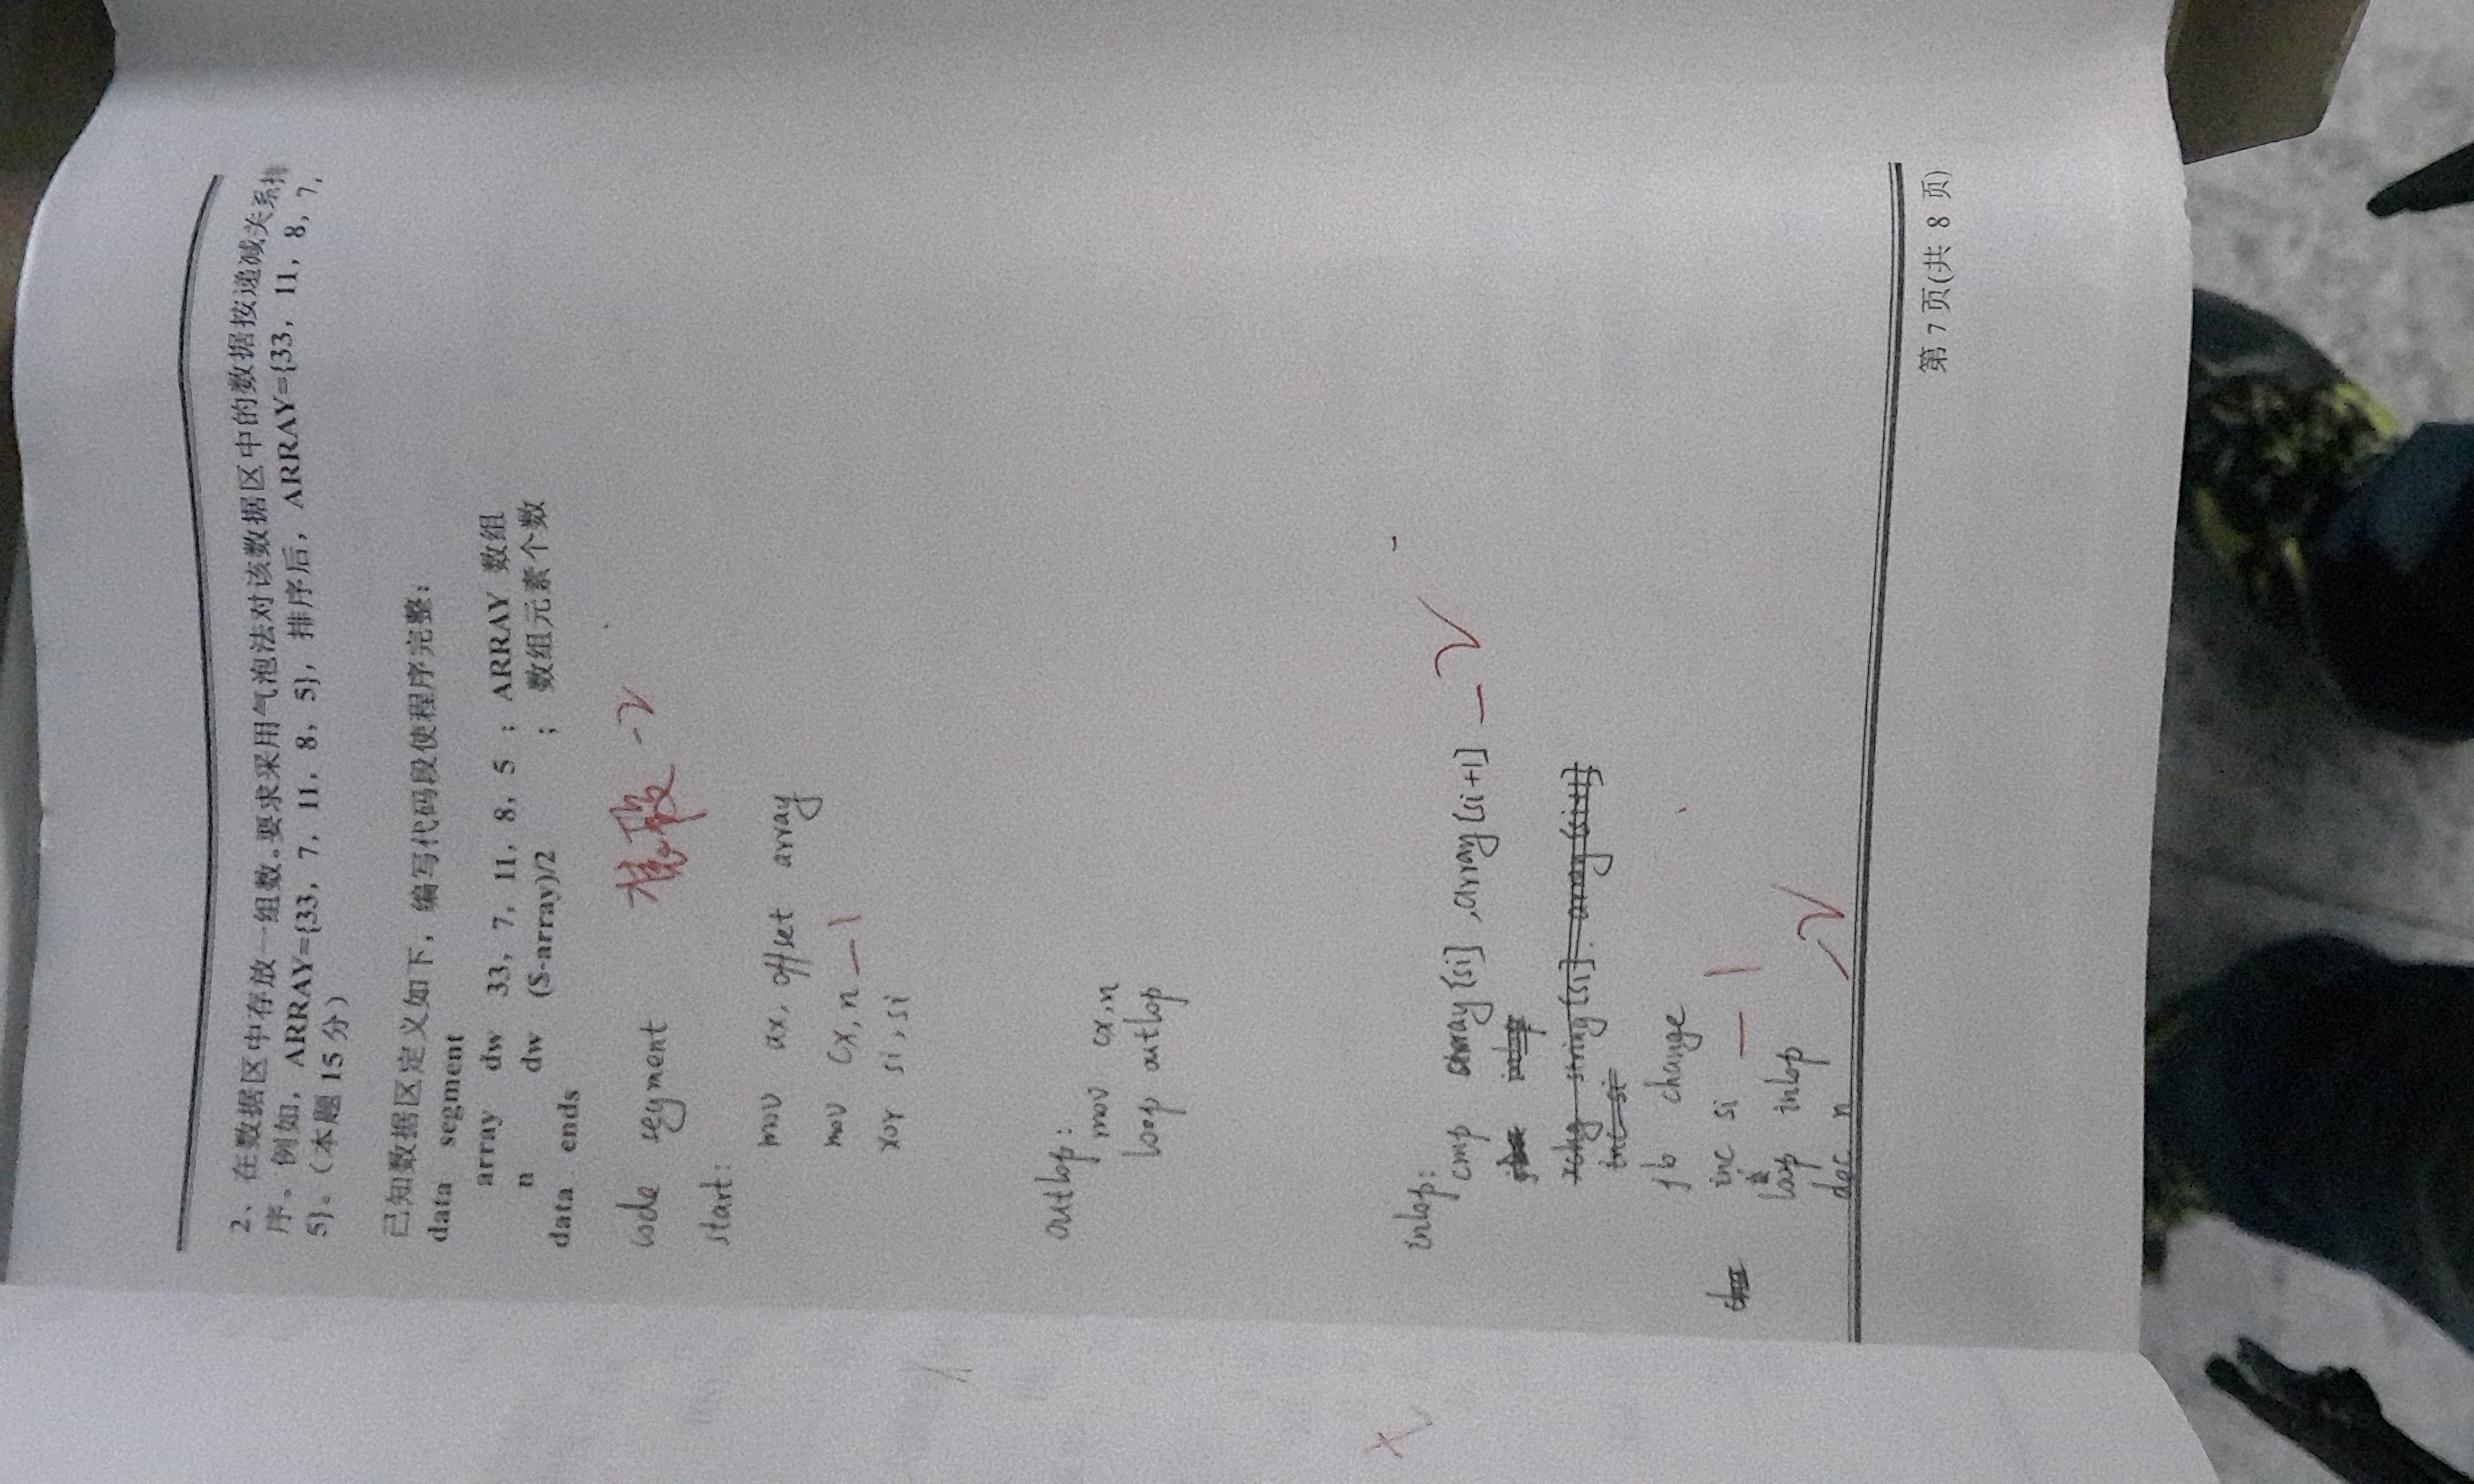 2、在数据区中存放一组数。要求采用气泡法对该数据区中的数据按递减关系排
序。例如，ARRAY={33，7，11，8，5}，排序后，ARRAY={33，11，8，7，
5}。（本题 15 分）
已知数据区定义如下，编写代码段使程序完整：
data segment
array dw 33，7，11，8，5 ； ARRAY 数组
n dw ($-array)/2 ； 数组元素个数
data ends
code segment 装段 -2
start:
mov ax, offset array
mov cx, n -1
xor si, si
outlop:
mov cx, n
loop outlop
inlop:
cmp array[si], array[si+1] -2
xchg string[si], array[si+1]
inc si
jb change
inc si -1
loop inlop
dec n -2
第 7 页(共 8 页)